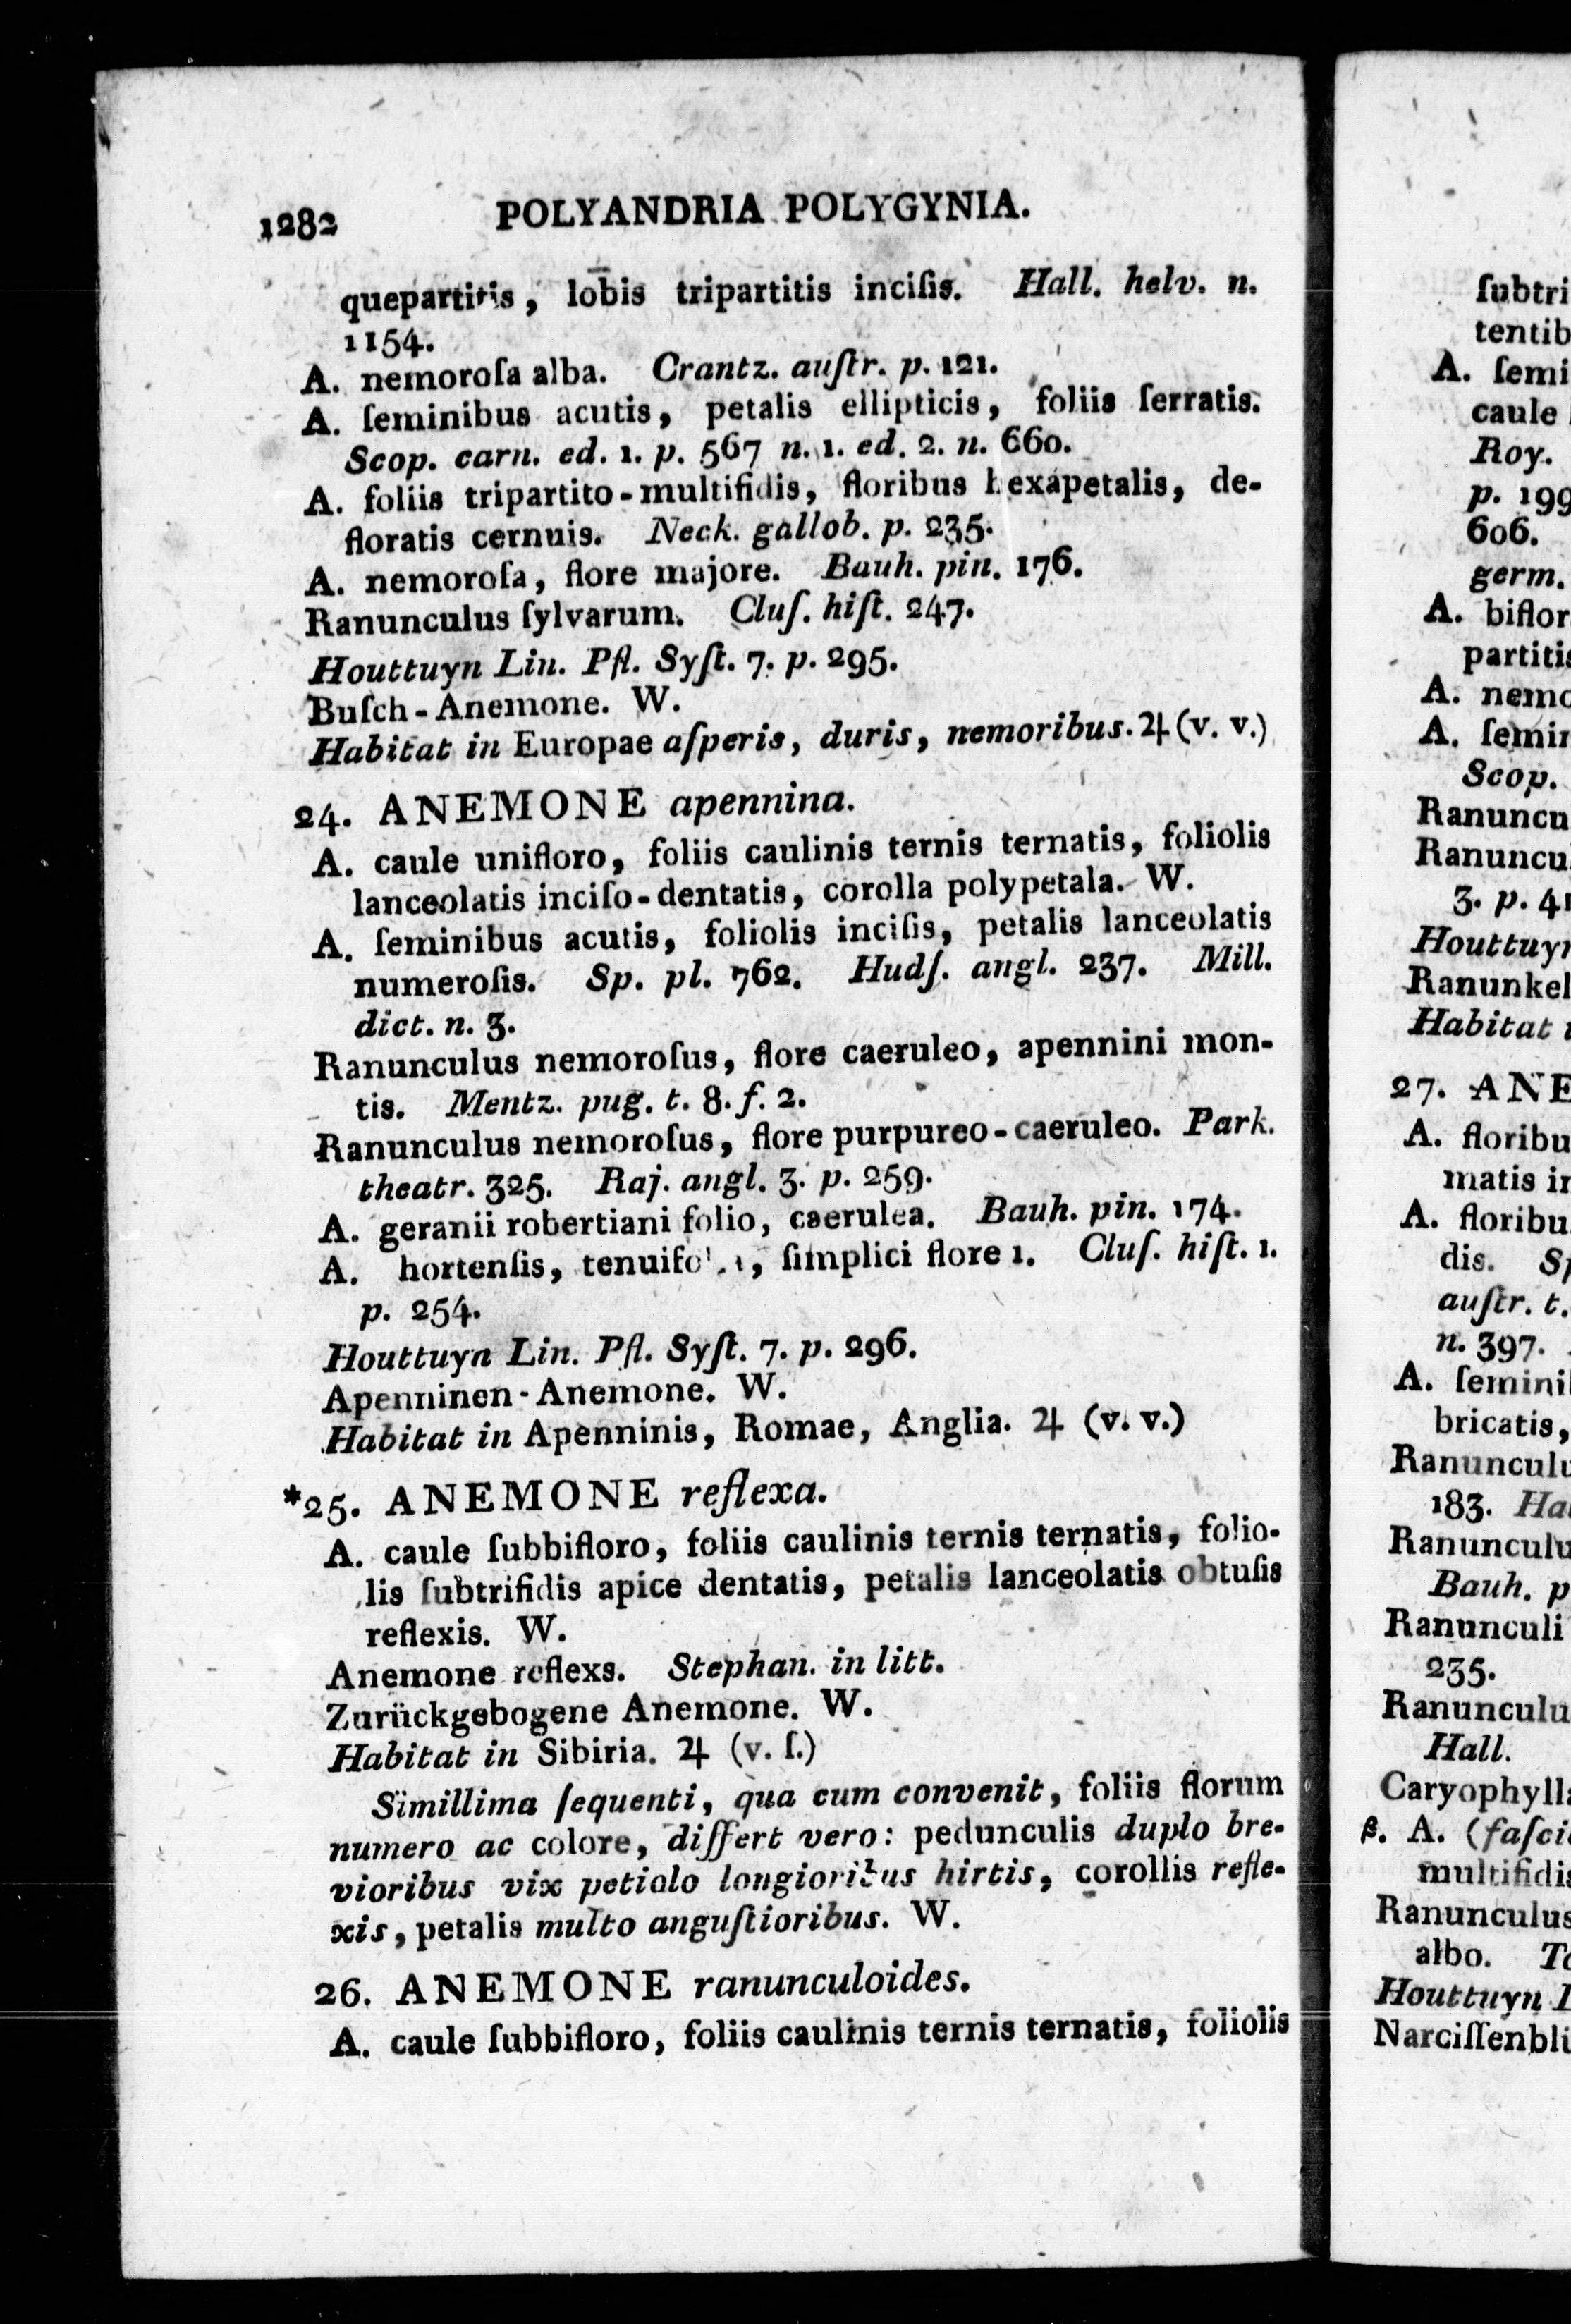 1282 POLYANDRIA POLYGYNIA.
quepartitis, lobis tripartitis inciſis. Hall. helv. n.
1154.
A. nemoroſa alba. Crantz. auſtr. p. 121.
A. ſeminibus acutis, petalis ellipticis, foliis ſerratis.
Scop. carn. ed. 1. p. 567 n. 1. ed. 2. n. 660.
A. foliis tripartito-multifidis, floribus hexapetalis, de-
floratis cernuis. Neck. gallob. p. 235.
A. nemoroſa, flore majore. Bauh. pin. 176.
Ranunculus ſylvarum. Cluſ. hiſt. 247.
Houttuyn Lin. Pfl. Syſt. 7. p. 295.
Buſch-Anemone. W.
Habitat in Europae aſperis, duris, nemoribus. ♃ (v. v.)
24. ANEMONE apennina.
A. caule unifloro, foliis caulinis ternis ternatis, foliolis
lanceolatis inciſo-dentatis, corolla polypetala. W.
A. ſeminibus acutis, foliolis inciſis, petalis lanceolatis
numeroſis. Sp. pl. 762. Hudſ. angl. 237. Mill.
dict. n. 3.
Ranunculus nemoroſus, flore caeruleo, apennini mon-
tis. Mentz. pug. t. 8. f. 2.
Ranunculus nemoroſus, flore purpureo-caeruleo. Park.
theatr. 325. Raj. angl. 3. p. 259.
A. geranii robertiani folio, caerulea. Bauh. pin. 174.
A. hortenſis, ſimplici flore 1. Cluſ. hiſt. 1.
p. 254.
Houttuyn Lin. Pfl. Syſt. 7. p. 296.
Apenninen-Anemone. W.
Habitat in Apenninis, Romae, Anglia. ♃ (v. v.)
*25. ANEMONE reflexa.
A. caule ſubbifloro, foliis caulinis ternis ternatis, folio-
lis ſubtrifidis apice dentatis, petalis lanceolatis obtuſis
reflexis. W.
Anemone reflexs. Stephan. in litt.
Zurückgebogene Anemone. W.
Habitat in Sibiria. ♃ (v. ſ.)
Simillima ſequenti, qua cum convenit, foliis florum
numero ac colore, differt vero: pedunculis duplo bre-
vioribus vix petiolo longioribus hirtis, corollis refle-
xis, petalis multo anguſtioribus. W.
26. ANEMONE ranunculoides.
A. caule ſubbifloro, foliis caulinis ternis ternatis, foliolis
ſubtri
tentib
A. ſemi
caule
Roy.
p. 199
606.
germ.
A. biflor
partitis
A. nemo
A. ſemin
Scop.
Ranuncu
Ranuncul
3. p. 41
Houttuyn
Ranunkel
Habitat
27. ANE
A. floribu
matis in
A. floribu
dis. Sp
auſtr. t.
n. 397.
A. ſemini
bricatis,
Ranunculu
183. Hal
Ranunculu
Bauh. p
Ranunculi
235.
Ranunculu
Hall.
Caryophylla
β. A. (faſci
multifidis
Ranunculus
albo. To
Houttuyn L
Narciſſenbli